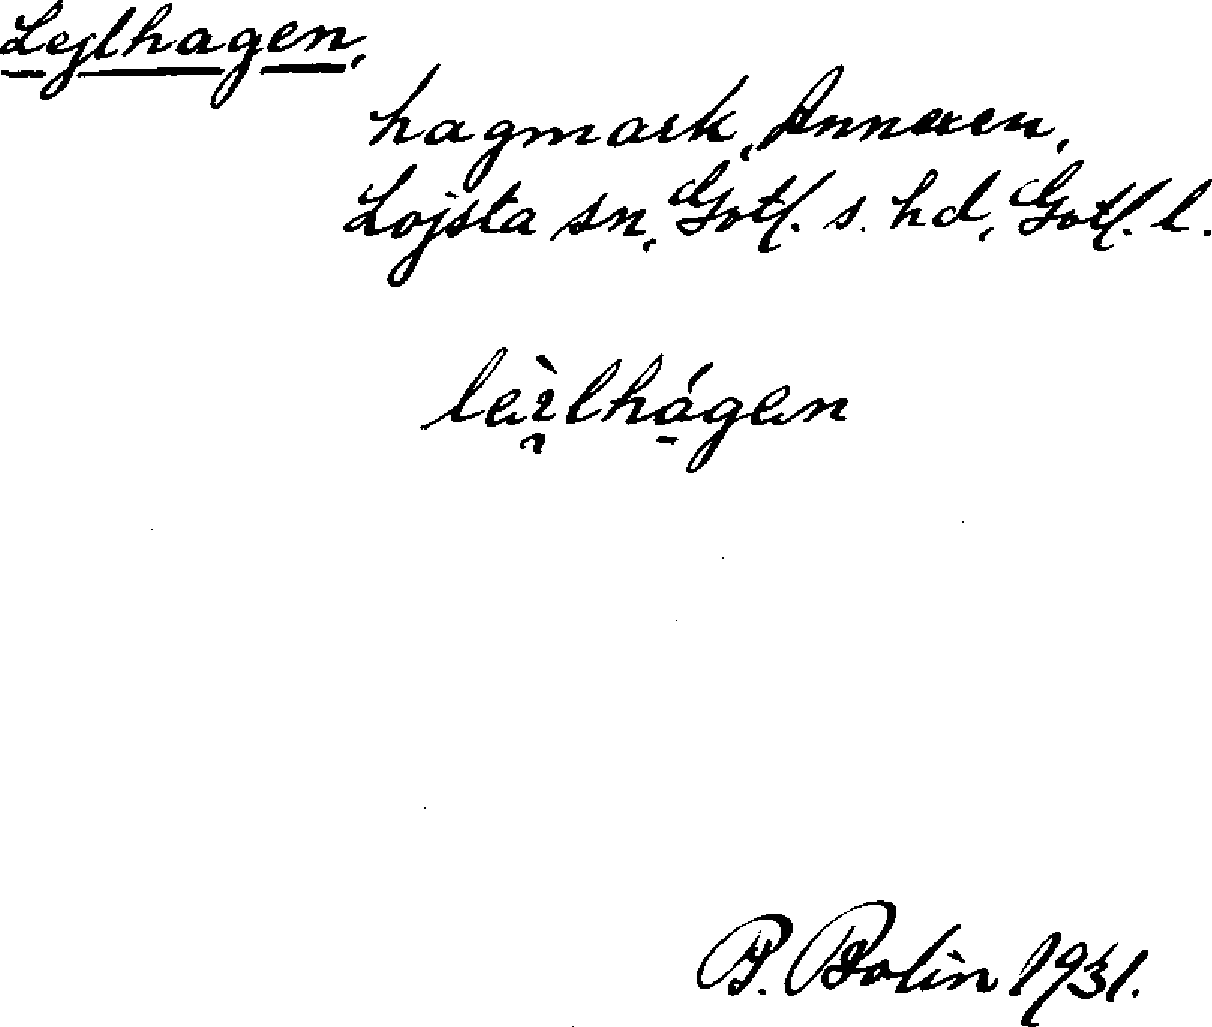 Lejlhagen,
hagmark, Annexen,
Lojsta sn, Gotl. s. hd, Gotl. l.
lèi̯lhá̱gen
P. Bolin 1931.